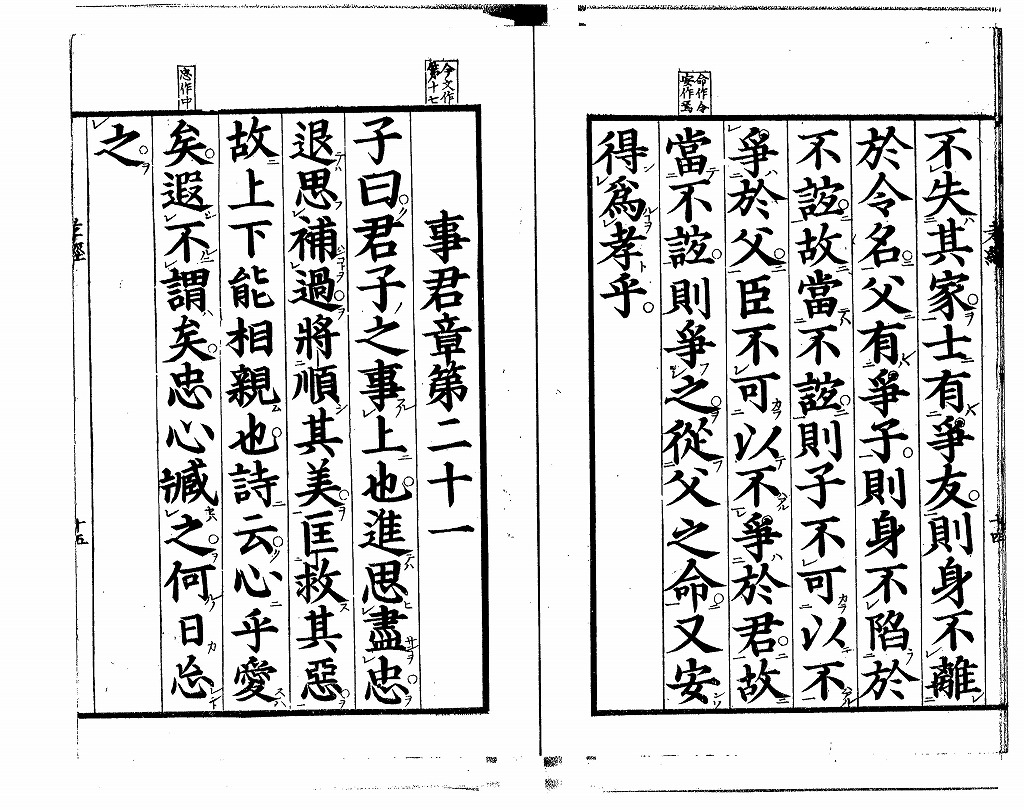 命作令
安作焉
不失其家士有爭友則身不離
於令名父有爭子則身不陷於
不誼故當不誼則子不可以不
爭於父臣不可以不爭於君故
當不誼則爭之從父之命又安
得爲孝乎
今文作
第十七
忠作中
事君章第二十一
子曰君子之事上也進思盡忠
退思補過將順其美匡救其惡
故上下能相親也詩云心乎愛
矣遐不謂矣忠心臧之何日忘
之
孝經
十五